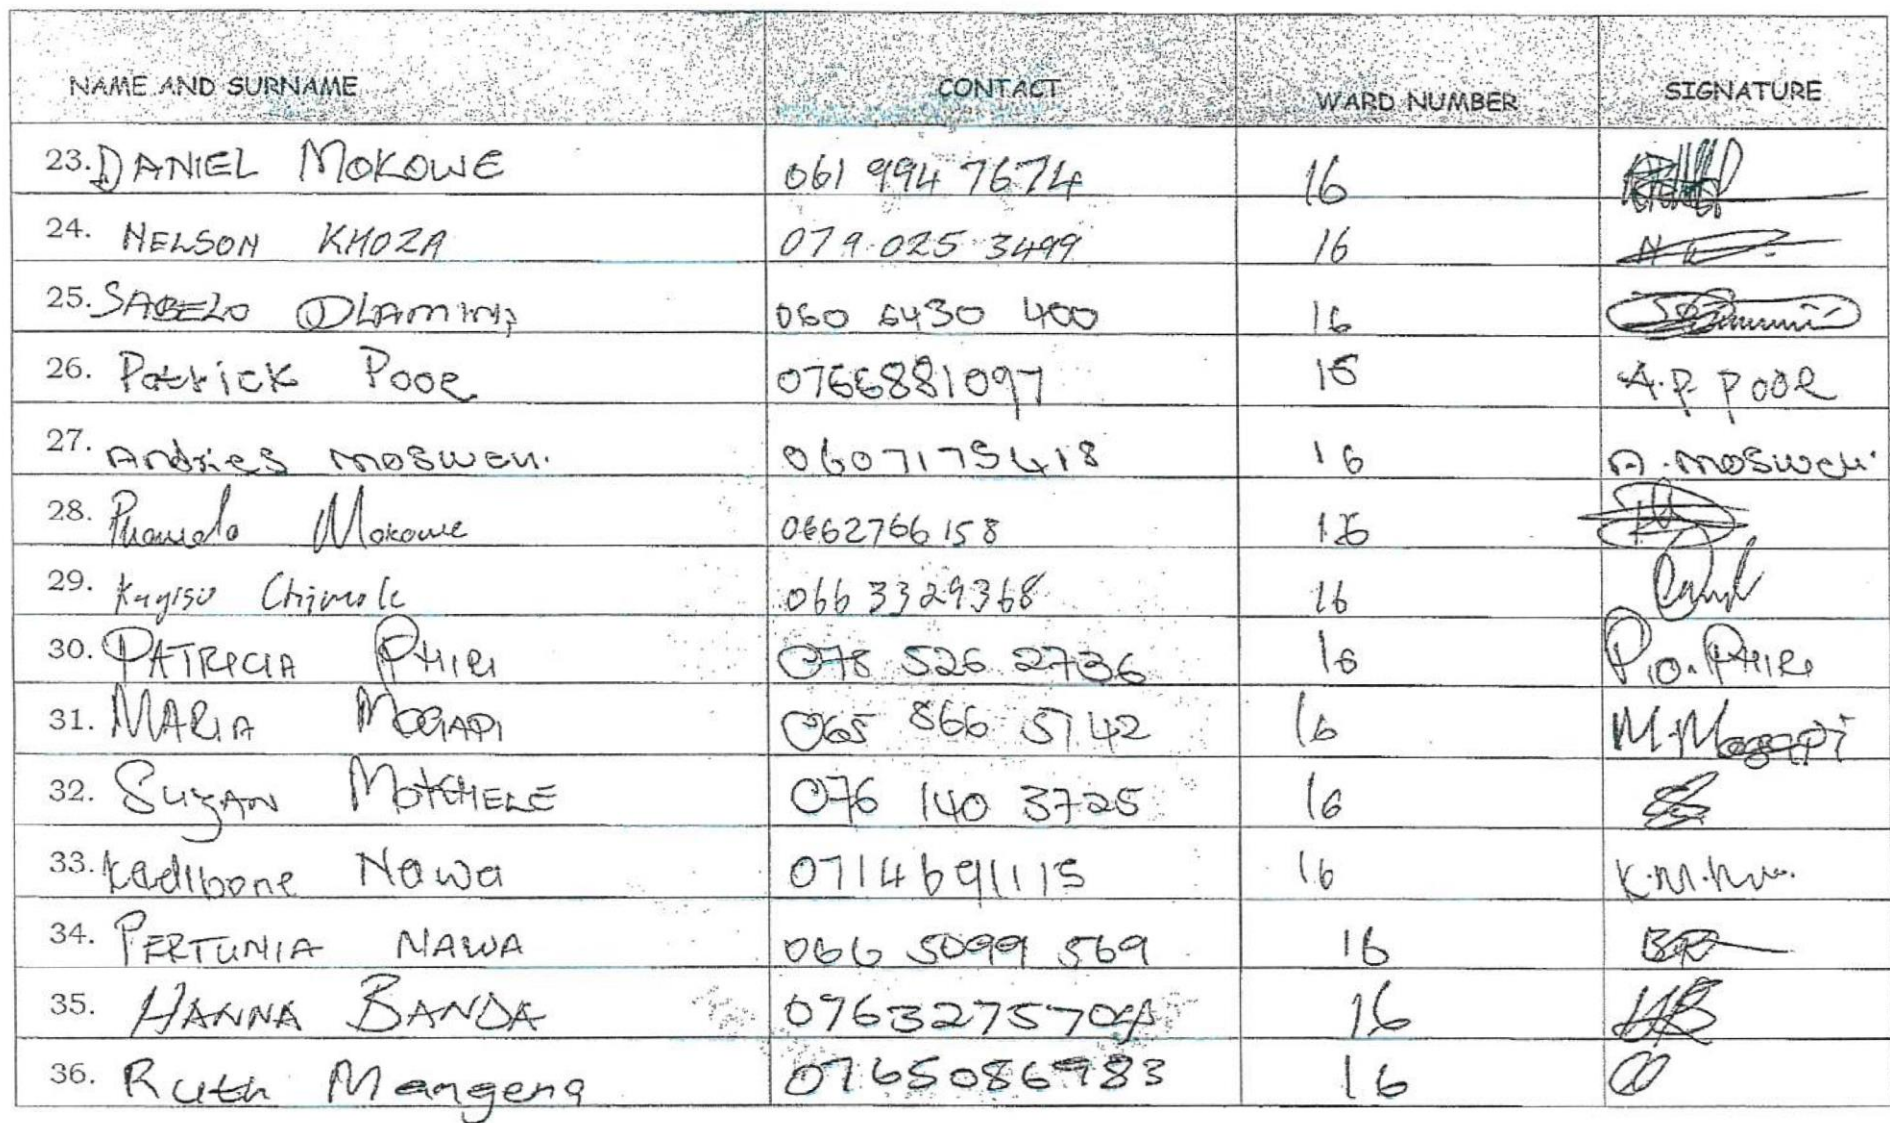 NAME AND SURNAME CONTACT WARD NUMBER SIGNATURE
23. DANIEL MOKOWE 061 994 7674 16
24. NELSON KHOZA 079 025 3499 16
25. SABELO DLAMINI 060 6430 400 16
26. Patrick Poor 0766881097 16 A.P POOR
27. Andries Mosweu. 0607175418 16 A. Mosweu.
28. Mokowe 0662766158 16
29. Kagiso 066 3329368 16
30. PATRICIA PHIRI 078 526 2736 16 P.O. PHIRI
31. MARIA MOGAPI 065 866 5142 16 M.Mogapi
32. SUZAN MOKHELE 076 140 3725 16
33. Kedibone Nawa 0714691115 16
34. PERTUNIA NAWA 066 5099 569 16
35. HANNA BANDA 16 HB
36. Ruth Mangena 0765086983 16